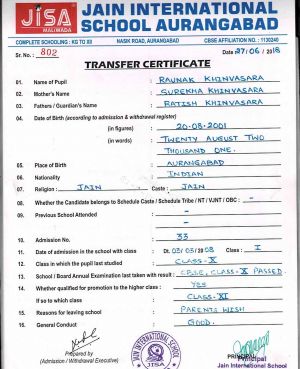 JAIN INTERNATIONAL
SCHOOL AURANGABAD
JISA
MALIWADA
COMPLETE SCHOOLING : KG TO XII NASIK ROAD, AURANGABAD CBSE AFFILIATION NO. : 1130240
Sr. No. : 802 Date : 27/06/2018
TRANSFER CERTIFICATE
01. Name of Pupil : RAUNAK KHINVASARA
02. Mother's Name : SUREKHA KHINVASARA
03. Fathers / Guardian's Name : RATISH KHINVASARA
04. Date of Birth (according to admission & withdrawal register)
(in figures) : 20-08-2001
(in words) : TWENTY AUGUST TWO
THOUSAND ONE.
05. Place of Birth : AURANGABAD
06. Nationality : INDIAN
07. Religion : JAIN Caste : JAIN
08. Whether the Candidate belongs to Schedule Caste / Schedule Tribe / NT / VJNT / OBC : -
09. Previous School Attended : -
-
10. Admission No. : 33
11. Date of admission in the school with class : Dt. 03/03/2008 Class : I
12. Class in which the pupil last studied : CLASS-X
13. School / Board Annual Examination last taken with result : CBSE, CLASS-X PASSED
14. Whether qualified for promotion to the higher class : YES
If so to which class : CLASS-XI
15. Reasons for leaving school : PARENTS WISH
16. General Conduct : GOOD.
Prepared by
(Admission / Withdrawal Executive)
JAIN INTERNATIONAL SCHOOL
JISA
PRINCIPAL
Principal
Jain International School